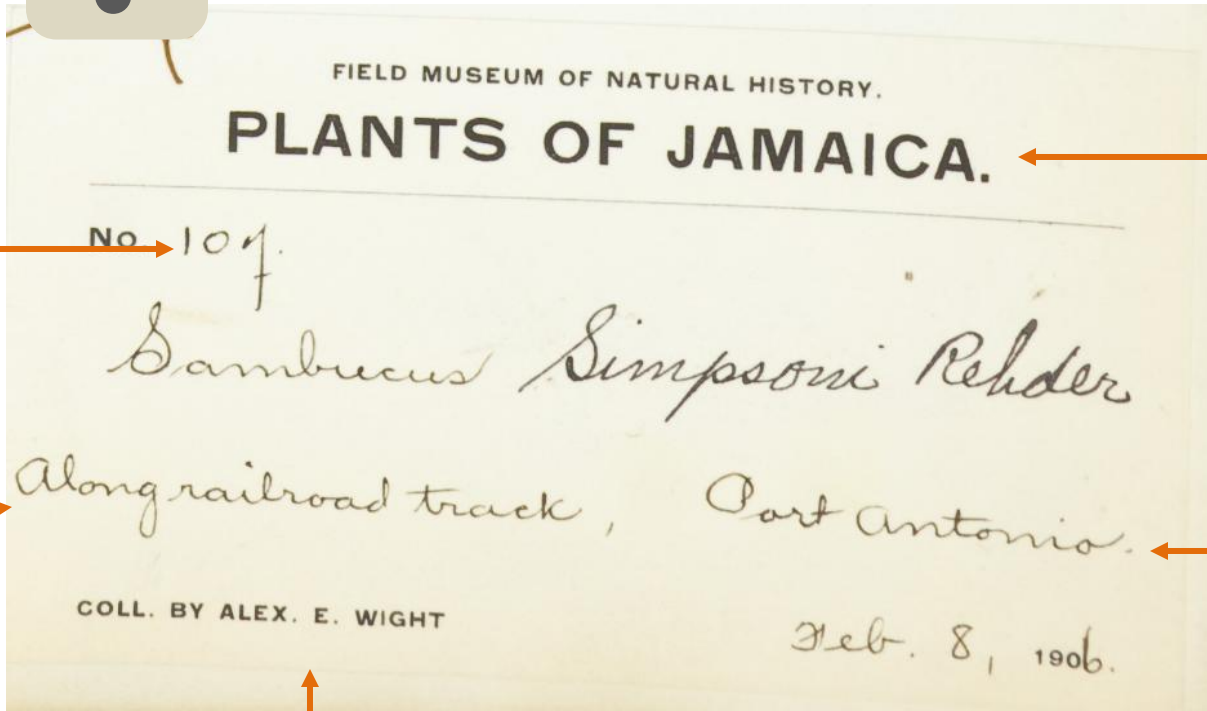 FIELD MUSEUM OF NATURAL HISTORY.
PLANTS OF JAMAICA.
No. 107.
Sambucus Simpsoni Rehder
Along railroad track, Port Antonio.
COLL. BY ALEX. E. WIGHT
Feb. 8, 1906.